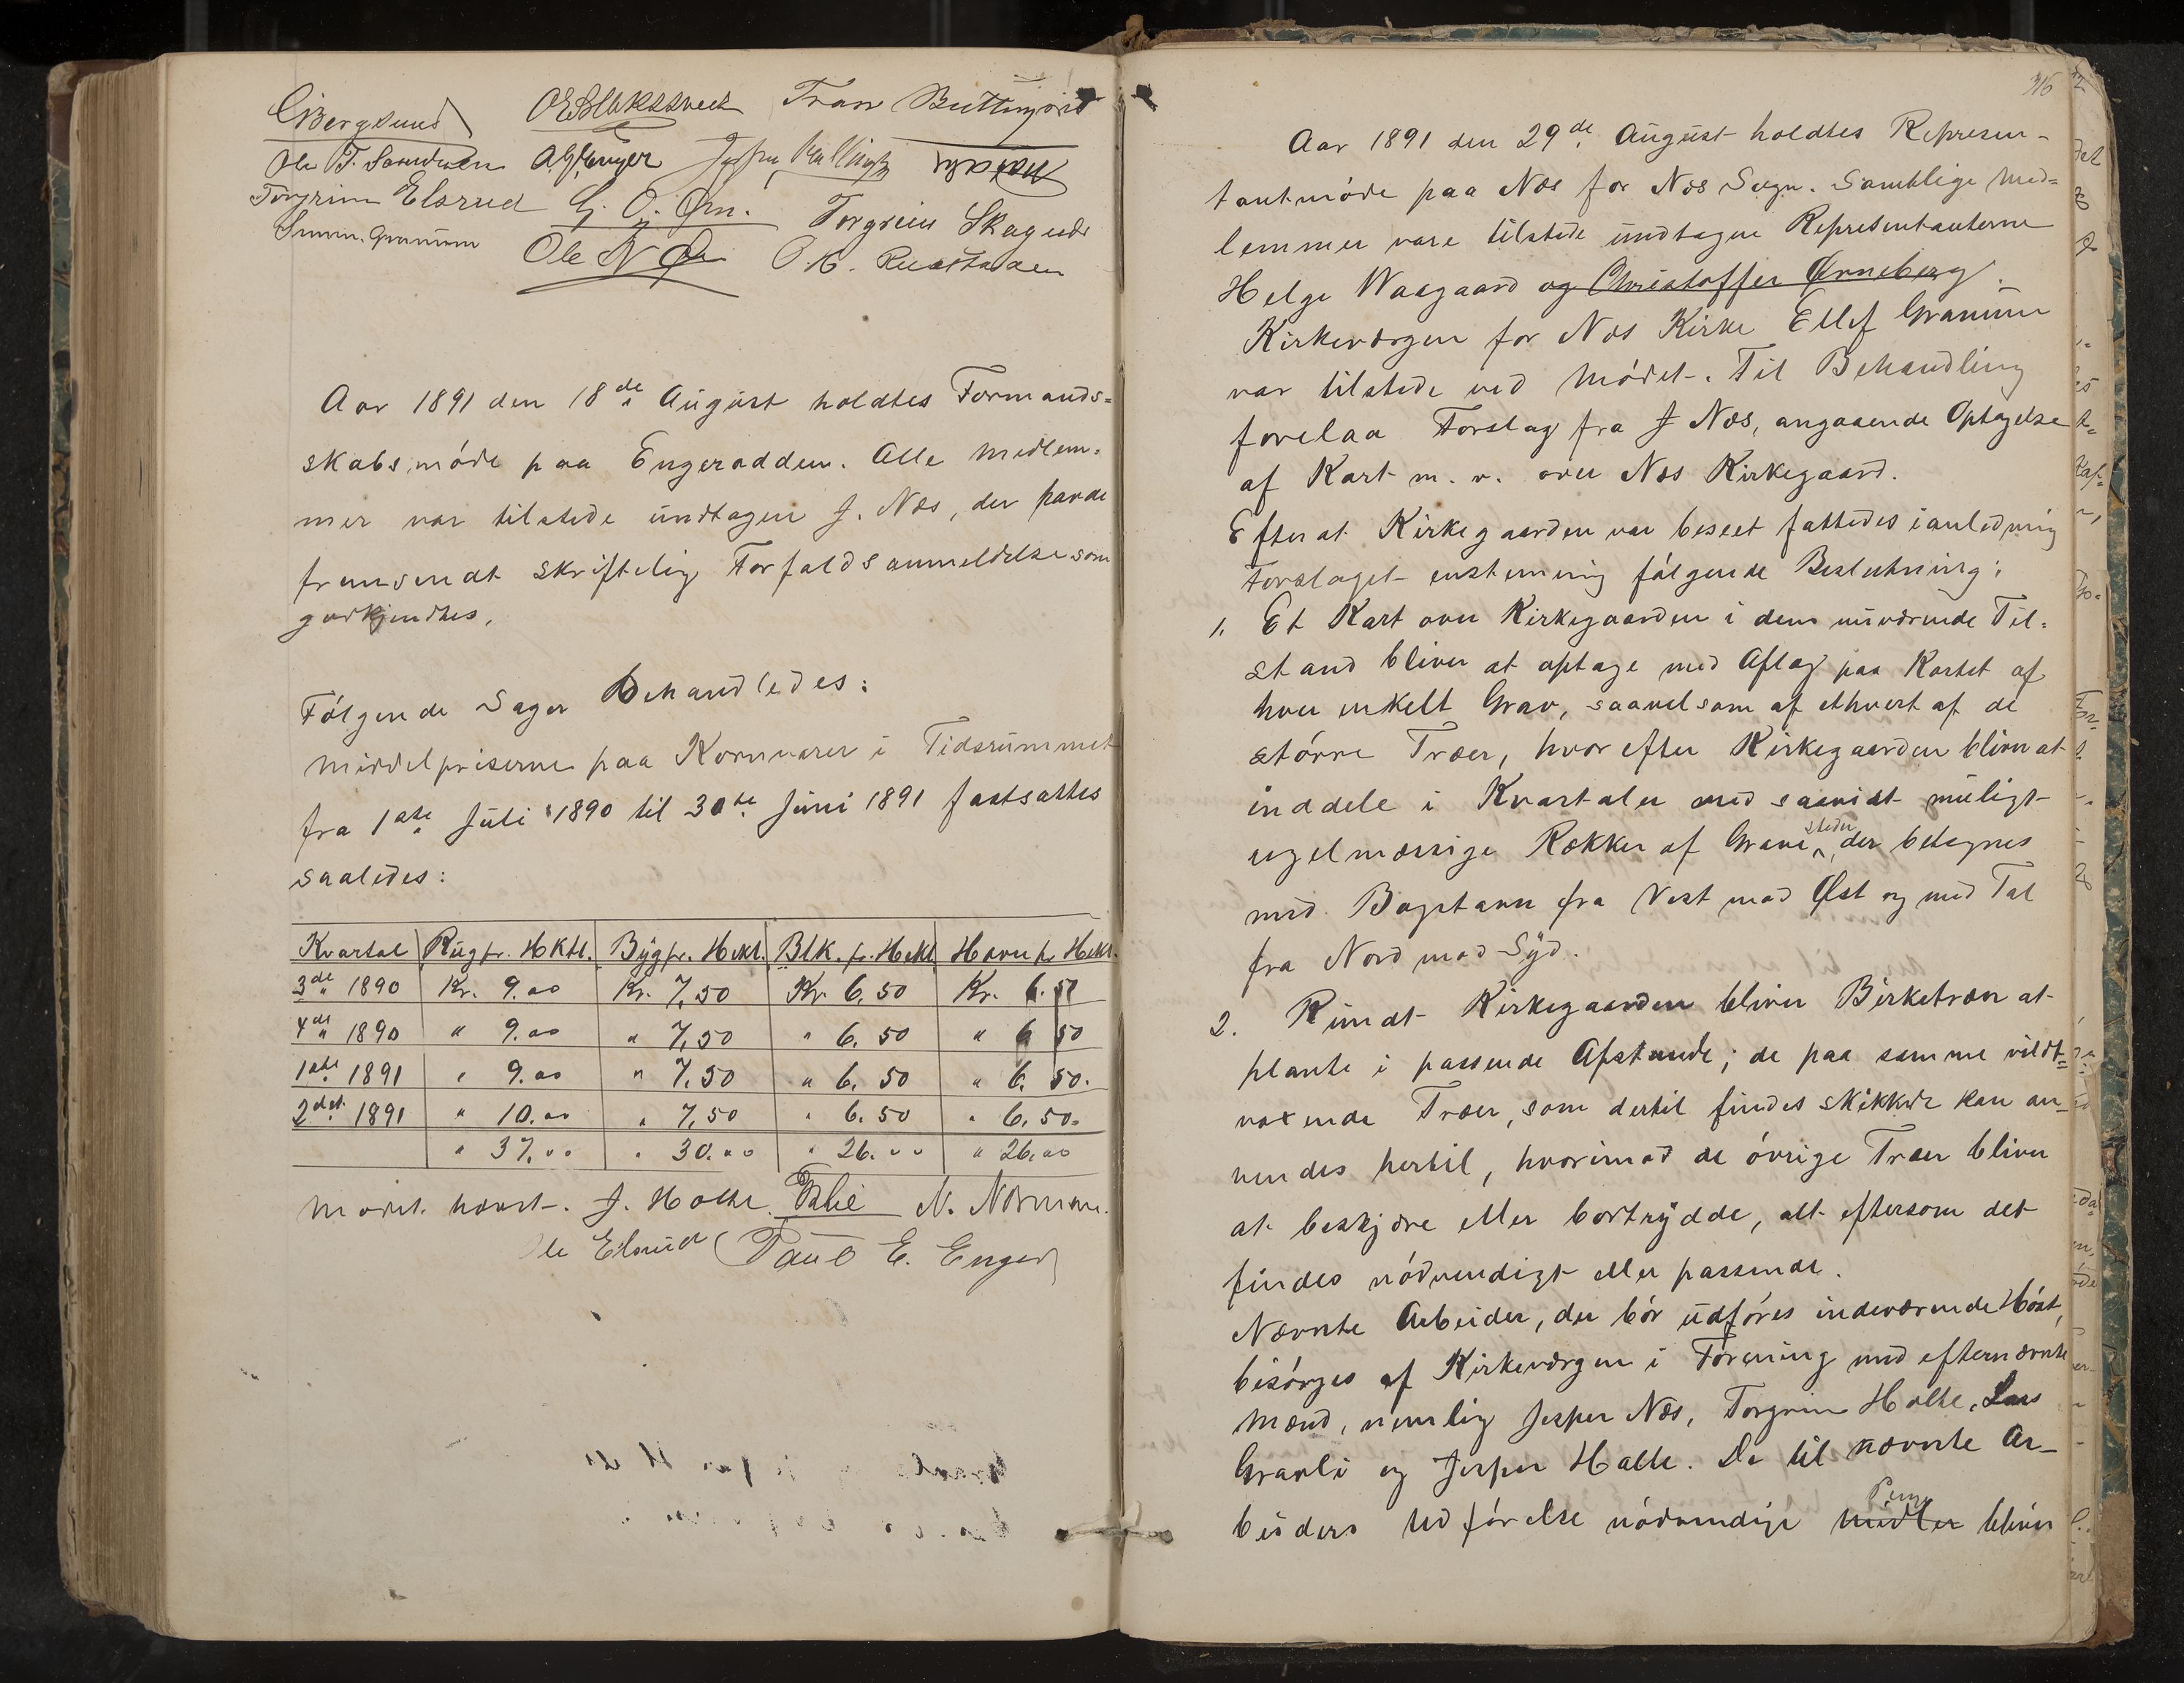 CBerglund
Ole T. Sorudsveen
Torgrim Elsrud G. O. Øm. Torgrim Skagnæs
Ole N Øm
Aar 1891 den 18de August holdtes Formands-
skabsmøde paa Engerodden. Alle Medlem-
mer var tilstede undtagen J. Næs, der havde
fremsendt skriftelig Forfaldsanmeldelse som
godkjendtes.
Følgende Sager behandledes:
Middelpriserne paa Kornvarer i Tidsrummet
fra 1ste Juli 1890 til 30te Juni 1891 fastsattes
saaledes:
Kvartal Rug pr. Hktl. Byg pr. Hekt. Blk. pr. Hekt. Havre pr Hekt.
3de 1890 Kr. 9.00 Kr. 7,50 Kr. 6,50 Kr. 6.50
4de 1890 " 9.00 " 7,50 " 6. 50 " 6 50
1ste 1891 " 9.00 " 7.50 " 6. 50 " 6. 50.
2det 1891 " 10.00 " 7,50 " 6.50 " 6.50.
" 37.00 " 30.00 " 26.00 " 26.00
Mødet hævet. J. Holte. N. Norman.
Ole Elsrud Paul E. Enger
316
Aar 1891 den 29de August holdtes Represen-
tantmøde paa Næs for Næs Sogn. Samtlige Med-
lemmer vare tilstede undtagen Representanterne
Helge Waagaard og Christoffer Ørneberg.
Kirkeværgen for Næs Kirke Ellef Granum
var tilstede ved Mødet. Til Behandling
forelaa Forslag fra J Næs, angaaende Optagelse
af Kart m. v. over Næs Kirkegaard.
Efterat Kirkegaarden var beseet fattedes i anledning
Forslaget enstemmig følgende Beslutning:
1. Et Kart over Kirkegaarden i dens nuværende Til-
stand bliver at optage med Aflag paa Kartet af
hver enkelt Grav, saavelsom af ethvert af de
større Træer, hvorefter Kirkegaarden bliver at
inddele i Kvartaler med saavidt muligt
regelmæssige Rækker af Gravesteder, der betegnes
med Bogstaver fra Vest mod Øst og med Tal
fra Nord mod Syd.
2. Rundt Kirkegaarden bliver Birketræer at
plante i passende Afstande; de paa samme vildt-
voxende Træer, som dertil findes skikkede kan an-
vendes hertil, hvorimod de øvrige Træer bliver
at beskjære eller bortrydde, alt eftersom det
findes nødvendigt eller passende.
Nævnte Arbeider, der bør udføres indeværende Høst,
besørges af Kirkeværgen i Forening med efternævnte
Mænd, nemlig Jesper Næs, Torgrim Holte, Lars
Gravli og Jesper Holte. De til nævnte Ar-
beiders Udførelse nødvendige Midler Penge bliver